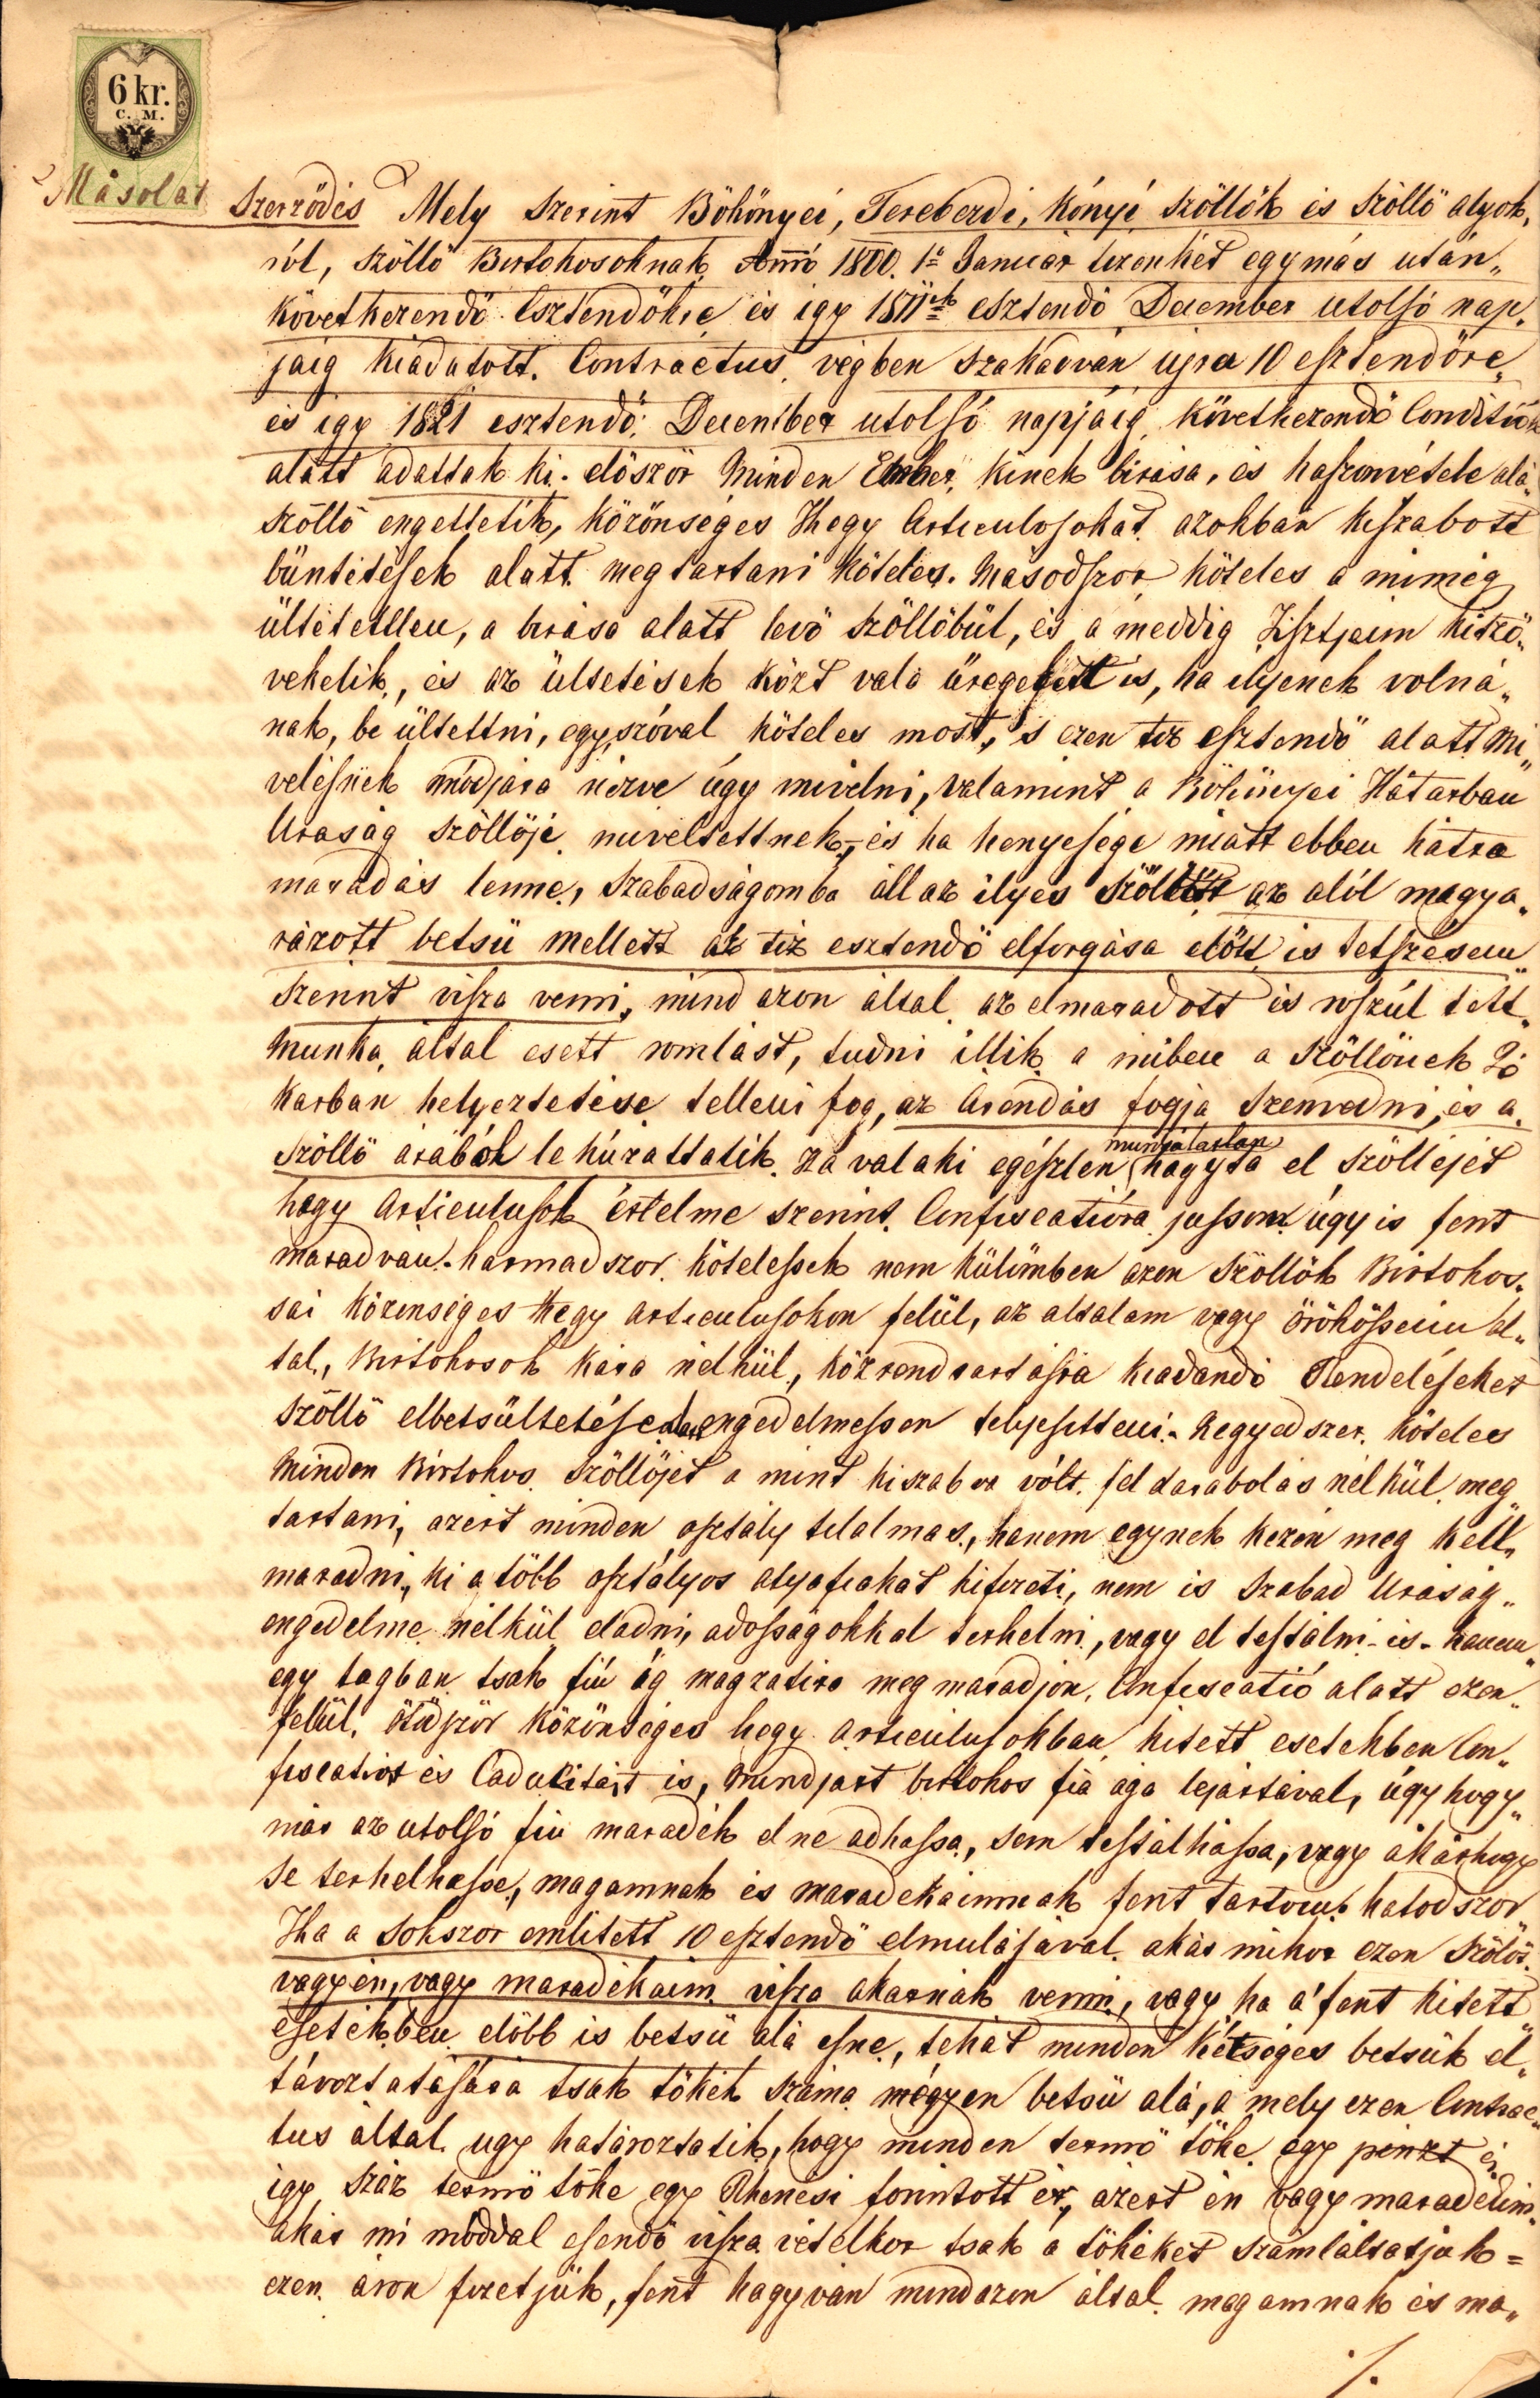 6 kr.
C. M.
Másolat
Szerződés Mely szerint Böhönyei, Tereberdi, Kónyi szöllők és szöllő alyok„
ról, szöllő Birtokosoknak Anno 1800. 1ő Január tizenkét egymás után„
következendő Esztendőkre és igy 1811ik esztendő December utolsó nap„
jáig kiadatott. Contractus végben szakadván ujra 10 esztendőre„
és igy 1821 esztendő December utolsó napjáig következendő Conditiók
alatt adattak ki. először Minden Ember kinek birása, és haszonvétele alá„
szöllő engettetik, közönséges Hegy Articulosokat azokban kiszabott
büntetések alatt megtartani köteles. Másodszor köteles a mimég
ültetetlen, a birása alatt levő szöllőbül, és a meddig Tisztjeim kitző„
vekelik, és az ültetések közt való üregeket is, ha ilyenek volná„
nak, be ültettni, egyszóval köteles most, s ezen tiz esztendő alatt Mi„
velésnek módjára nézve úgy mivelni, valamint a Böhönyei Hátarban
Uraság szöllöji miveltettnek, és ha henyesége miatt ebben hátra
maradás lenne, szabadságomba áll az ilyes szöllőtt az alól magya„
rázott betsü mellett az tiz esztendő elforgása előtt is tetszésem
szerint visza venni, mind azon által az elmaradott és roszúl tett„
munka által esett romlást, tudni illik a miben a szöllőnek Jó
karban helyeztetése telleni fog, az Arendás fogja szenvedni, és a
szöllő árából le húzattatik. Ha valaki egészlen munkátlan hagyta el szöllejét
hogy Articulusok értelme szerint Confiscatióra jusson úgy is fent
maradván. harmadszor kötelessek nem külömben azon szöllők Birtokos„
sai közenséges Hegy articulusokon felül, az altalam vagy örökössein ál„
tal, Birtokosok kára nélkül, közrendtartásra kiadandó Rendeléseket
szöllő elbetsültetése alatt engedelmessen teljesitteni. Negyedszer köteles
Minden Birtokos szöllőjét a mint kiszabva vólt feldarabolás nélkül meg„
tartani, azért minden osztály tilalmas, hanem egynek kezén meg kell„
maradni, ki a több osztályos atyafiakat kifizeti, nem is szabad Uraság„
engedelme nélkül eladni, adosságokkal terhelni, vagy el testálni is. hanem„
egy tagban tsak fiú ág magzatira megmaradjon, Confiscatió alatt ezen„
felül. ötödször közönséges hegy articulusokban kitett esetekben Con„
fiscatiót és Caducitást is, mindjárt birtokos fia ága lejártával, úgy hogy„
már az utolsó fiu maradék el ne adhassa, sem testálhassa, vagy akárhogy
se terhelhesse, magamnak és maradékaimnak fent tartom. hatodszor
Ha a sokszor említett 10 esztendő elmulásával akár mikor ezen szölőt
vagy én, vagy maradékaim visza akarnák venni, vagy ha a' fent kitett„
esetekben előbb is betsü alá esne, tehát minden kétséges betsük el„
távoztatására tsak tőkék száma mégyen betsü alá, a mely ezen Contrac„
tus által ugy határoztatik, hogy minden termő tőke egy pénzt és
igy száz termő tőke egy Rhenési forintott ér, azért én vagy maradékim
akár mi móddal esendő visza vételkor tsak a tőkéket számláltatjuk =
ezen áron fizetjük, fent hagyván mindazon által magamnak és ma„
./.